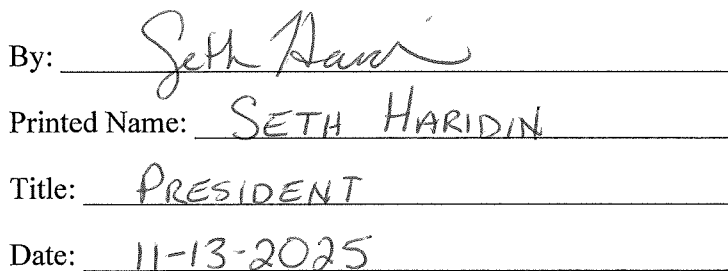 By: Seth Hari
Printed Name: SETH HARIDIN
Title: PRESIDENT
Date: 11-13-2025